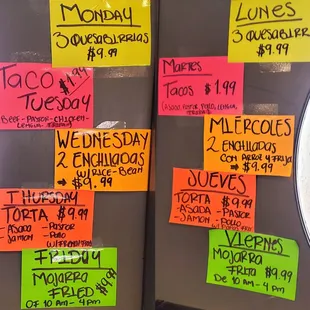 MONDAY
3 QUESABIRRIAS
$9.99
TACO $1.99
TUESDAY
BEEF-PASTOR-CHICKEN-
LENGUA-TRIPA
WEDNESDAY
2 ENCHILADAS
W/RICE-BEAN
→ $9.99
THURSDAY
TORTA $9.99
-ASADA -PASTOR
-JAMON -POLLO
W/FRENCH FRIES
FRIDAY
MOJARRA
FRIED $9.99
OF 10 AM - 4 PM
LUNES
3 QUESABIRR
$9.99
MARTES
TACOS $1.99
MIERCOLES
2 ENCHILADAS
CON ARROZ Y FRIJO
→ $9.99
JUEVES
TORTA $9.99
-ASADA -PASTOR
-JAMON -POLLO
VIERNES
MOJARRA
FRITA $9.99
DE 10 AM - 4 PM